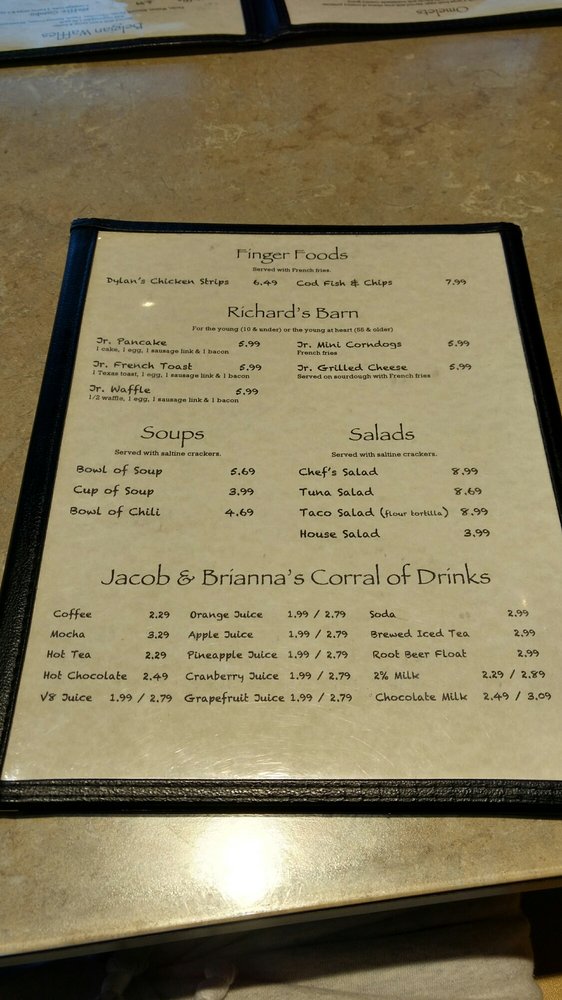 Belgian Waffles
Omelets
Finger Foods
Served with French fries.
Dylan's Chicken Strips 6.49 Cod Fish & Chips 7.99
Richard's Barn
For the young (10 & under) or the young at heart (55 & older)
Jr. Pancake 5.99 Jr. Mini Corndogs 5.99
1 cake, 1 egg, 1 sausage link & 1 bacon French fries
Jr. French Toast 5.99 Jr. Grilled Cheese 5.99
1 Texas toast, 1 egg, 1 sausage link & 1 bacon Served on sourdough with French fries
Jr. Waffle 5.99
1/2 waffle, 1 egg, 1 sausage link & 1 bacon
Soups Salads
Served with saltine crackers. Served with saltine crackers.
Bowl of Soup 5.69 Chef's Salad 8.99
Cup of Soup 3.99 Tuna Salad 8.69
Bowl of Chili 4.69 Taco Salad (flour tortilla) 8.99
House Salad 3.99
Jacob & Brianna's Corral of Drinks
Coffee 2.29 Orange Juice 1.99 / 2.79 Soda 2.99
Mocha 3.29 Apple Juice 1.99 / 2.79 Brewed Iced Tea 2.99
Hot Tea 2.29 Pineapple Juice 1.99 / 2.79 Root Beer Float 2.99
Hot Chocolate 2.49 Cranberry Juice 1.99 / 2.79 2% Milk 2.29 / 2.89
V8 Juice 1.99 / 2.79 Grapefruit Juice 1.99 / 2.79 Chocolate Milk 2.49 / 3.09